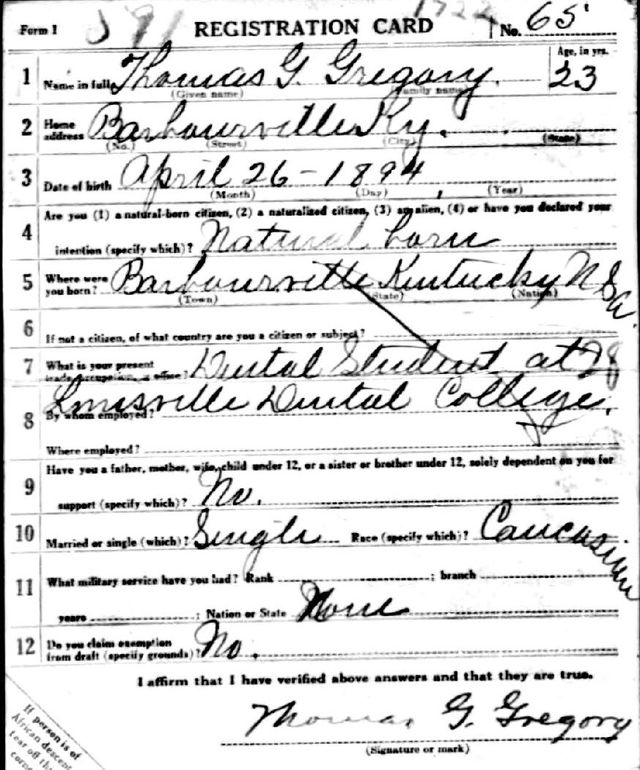 Form 1 391 REGISTRATION CARD No. 65
1 Name in full Thomas G. Gregory. Age, in yrs. 23
(Given name) (Family name)
2 Home address Barbourville Ky.
(No.) (Street) (City) (State)
3 Date of birth April 26 - 1894
(Month) (Day) (Year)
4 Are you (1) a natural-born citizen, (2) a naturalized citizen, (3) an alien, (4) or have you declared your
intention (specify which)? Natural born
5 Where were you born? Barbourville Kentucky U S a.
(Town) (State) (Nation)
6 If not a citizen, of what country are you a citizen or subject?
7 What is your present trade, occupation, or office? Dental Student at
8 Louisville Dental College.
By whom employed?
Where employed?
9 Have you a father, mother, wife, child under 12, or a sister or brother under 12, solely dependent on you for
support (specify which)? No.
10 Married or single (which)? Single Race (specify which)? Caucasian
11 What military service have you had? Rank ; branch
years ; Nation or State None
12 Do you claim exemption from draft (specify grounds)? No.
I affirm that I have verified above answers and that they are true.
Thomas G. Gregory
(Signature or mark)
If person is of
African descent
tear off this
corner